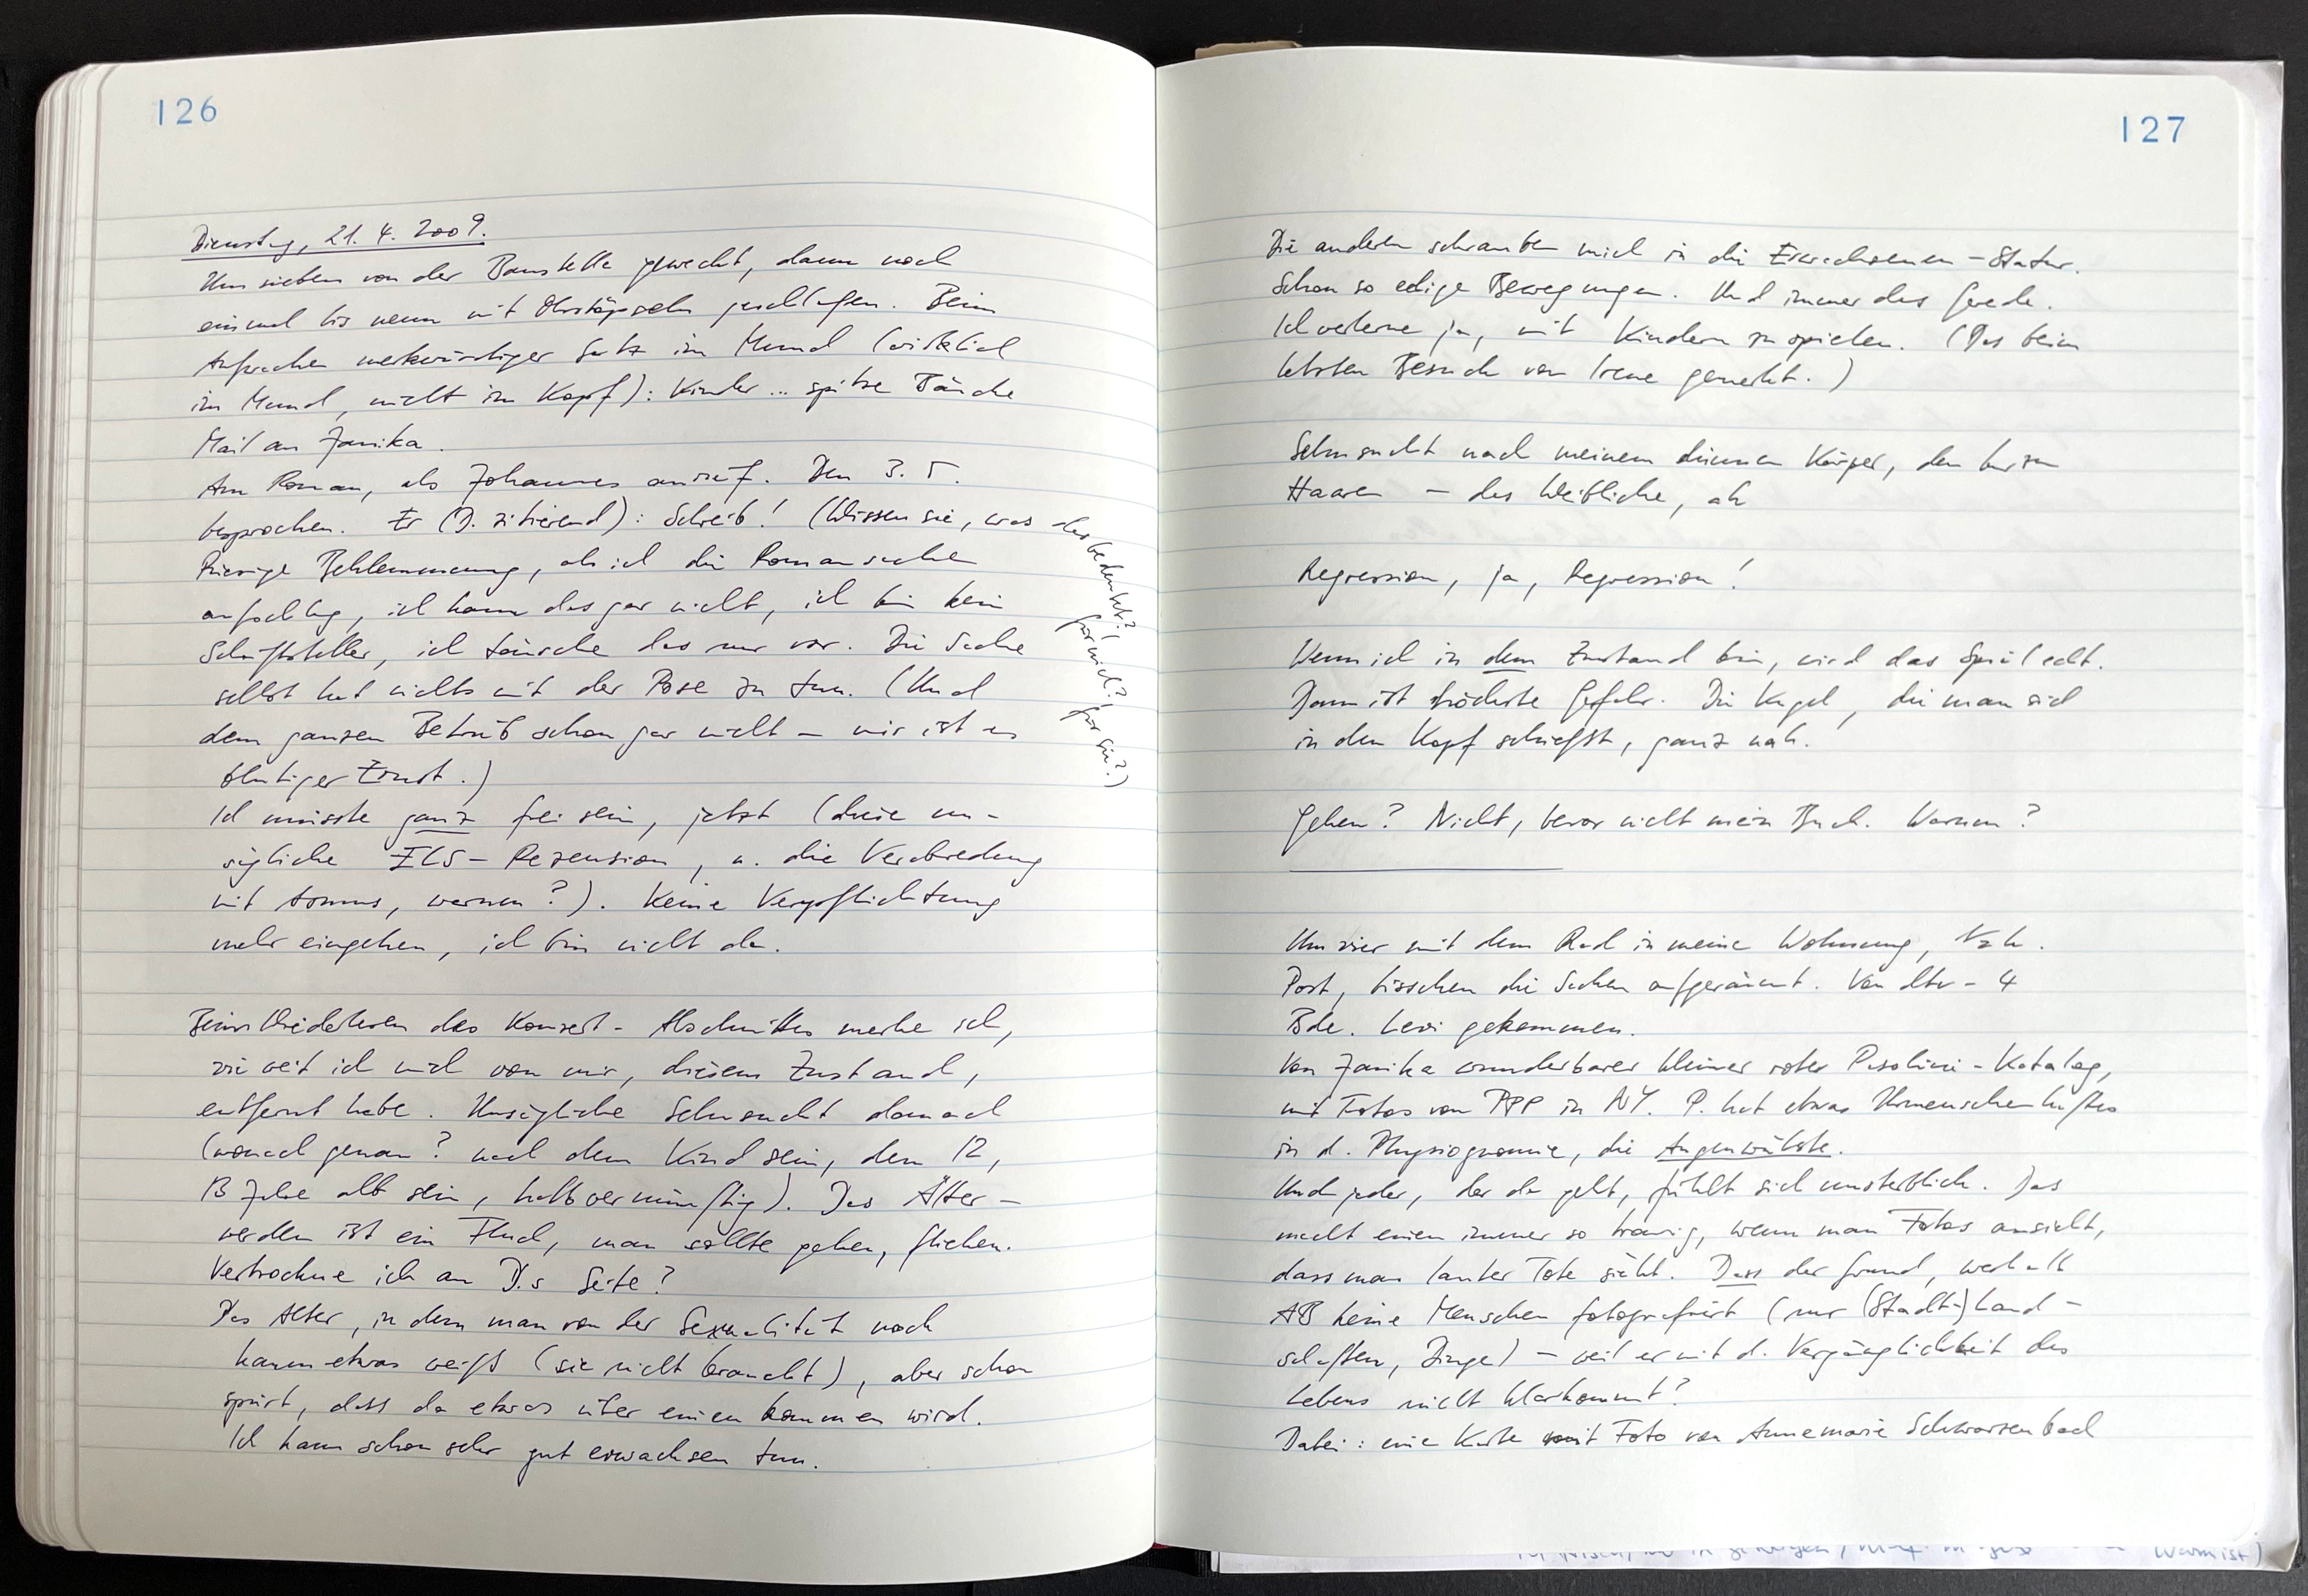 126
Dienstag, 21. 4. 2009.
Um sieben von der Baustelle geweckt, dann noch
einmal bis neun mit Ohrstöpseln geschlafen. Beim
Aufwachen merkwürdiger Satz im Mund (wirklich
im Mund, nicht im Kopf): Kinder ... spitze Bäuche
Mail an Janika.
Am Roman, als Johannes anrief. Den 3. 5.
besprochen. Er (D. zitierend): Schreib! (Wissen sie, was das bedeutet?, für mich?, für sie?)
Riesige Beklemmung, als ich die Romansachen
aufschlug, ich kann das gar nicht, ich bin kein
Schriftsteller, ich täusche das nur vor. Die Sache
selbst hat nichts mit der Pose zu tun. (Und
dem ganzen Betrieb schon gar nicht – mir ist es
blutiger Ernst.)
Ich müsste ganz frei sein, jetzt (diese un-
sägliche -Rezension, u. die Verabredung
mit , warum?). Keine Verpflichtung
mehr eingehen, ich bin nicht da.
Beim Wiederlesen des Konzert-Abschnittes merke ich,
wie weit ich mich von mir, diesem Zustand,
entfernt habe. Unsägliche Sehnsucht danach
(wonach genau? nach dem Kind sein, dem 12,
13 Jahre alt sein, halbvernünftig). Das Älter-
werden ist ein Fluch, man sollte gehen, fliehen.
Vertrockne ich an D.s Seite?
Das Alter, in dem man von der Sexualität noch
kaum etwas weiß (sie nicht braucht), aber schon
spürt, dass da etwas über einen kommen wird.
Ich kann schon sehr gut erwachsen tun.
127
Die anderen schrauben mich in die Erwachsenen-Statur.
Schon so eckige Bewegungen. Und immer das Gerede.
Ich verlerne ja, mit Kindern zu spielen. (Das beim
letzten Besuch von Irene gemerkt.)
Sehnsucht nach meinem dünnen Körper, den kurzen
Haaren – das Weibliche, ah
Regression, ja, Regression!
Wenn ich in dem Zustand bin, wird das Spiel echt.
Dann ist höchste Gefahr. Die Kugel, die man sich
in den Kopf schießt, ganz nah.
Gehen? Nicht, bevor nicht mein Buch. Warum?
Um vier mit dem Rad in meine Wohnung, 1/2 h.
Post, bisschen die Sachen aufgeräumt. Von dtv – 4
Bde. Levi gekommen.
Von Janika wunderbarer kleiner roter Pasolini-Katalog,
mit Fotos von PPP in NY. P. hat etwas Urmenschenhaftes
in d. Physiognomie, die Augenwülste.
Und jeder, der da geht, fühlt sich unsterblich. Das
macht einen immer so traurig, wenn man Fotos ansieht,
dass man lauter Tote sieht. Dass der Grund, weshalb
AB keine Menschen fotografiert (nur (Stadt-)Land-
schaften, Dinge) – weil er mit d. Vergänglichkeit des
Lebens nicht klarkommt?
Dabei: eine Karte mit Foto von Annemarie Schwarzenbach
warm ist)